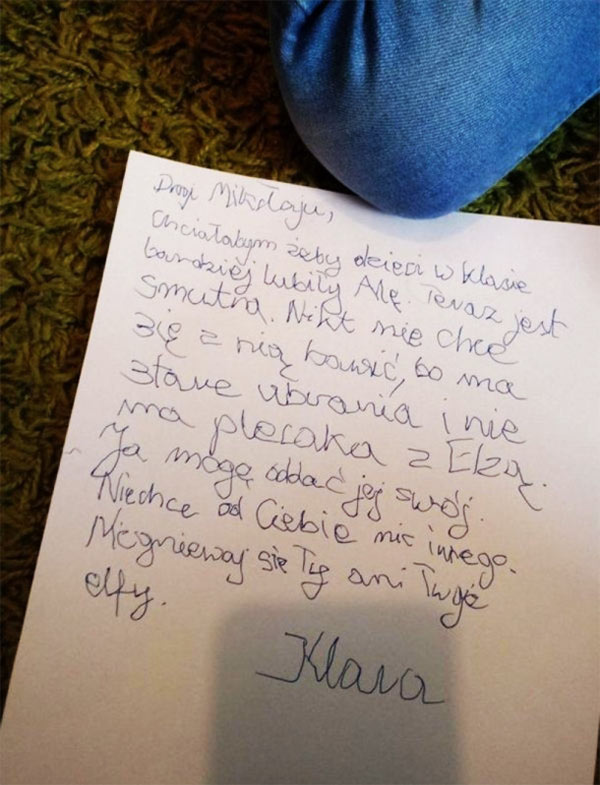 Drogi Mikołaju,
Chciałabym żeby dzieci w klasie
bardziej lubiły Alę. Teraz jest
smutna. Nikt nie chce
się z nią bawić, bo ma
stare ubrania i nie
ma plecaka z Elzą.
Ja mogę oddać jej swój.
Niechce od Ciebie nic innego.
Niegniewaj się Ty ani Twoje
elfy.
Klara